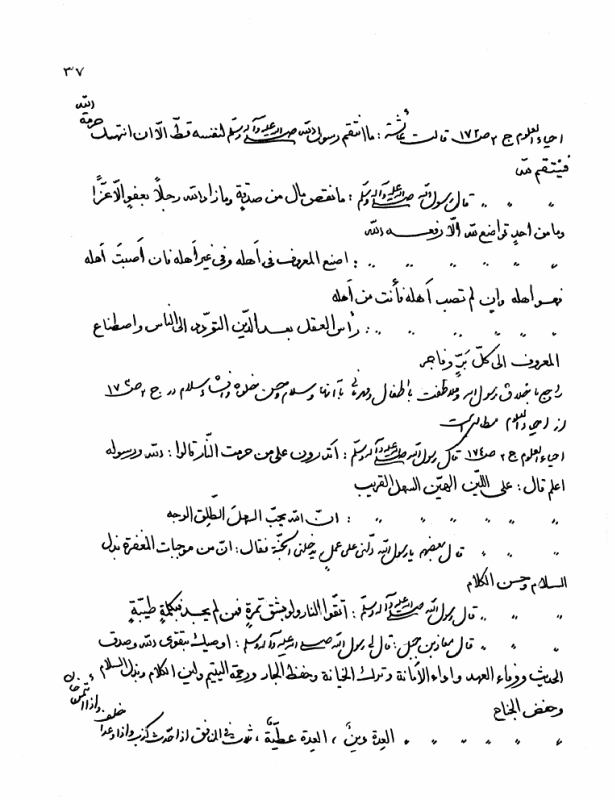 ٣٧
احیاء العلوم ج ٢ ص ١٧٢ قالت عائشة : ما انتقم رسول الله صلی الله علیه و آله وسلّم لنفسه قطّ الّا ان انتهك حرمة الله
فینتقم لله
〃 〃 〃 قال رسول الله صلی الله علیه و آله وسلّم : ما نقص مال من صدقةٍ وما زاد الله رجلاً بعفوٍ الّا عزّاً
وما من احدٍ تواضع لله الّا رفعه الله
〃 〃 〃 〃 〃 〃 〃 : اصنع المعروف فی أهله وفی غیر أهله فان أصبتَ أهله
فهو اهله وإن لم تصب أهله فأنت من أهله
〃 〃 〃 〃 〃 〃 〃 : رأس العقل بعد الدّین التودّد الی الناس واصطناع
المعروف الی كلّ بَرٍّ وفاجر
راجع باخلاق رسول الله وملاطفت با اطفال و با آنها وسلام وحسن خلق در ج ٢ ص ١٧٢
از احیاء العلوم مطالبی است
احیاء العلوم ج ٢ ص ١٧٤ قال رسول الله صلی الله علیه و آله وسلّم : أتدرون علی من حرمت النّار قالوا : الله ورسوله
اعلم قال : علی اللّین الهیّن السهل القریب
〃 〃 〃 〃 〃 〃 : انّ الله یحبّ السهلَ الطّلِق الوجه
〃 〃 〃 قال بعضهم یا رسول الله دلّنی علی عملٍ یدخلنی الجنّة فقال : انّ من موجبات المغفرة بذل
السلام وحسن الكلام
〃 〃 〃 قال رسول الله صلی الله علیه و آله وسلّم : اتّقوا النار ولو بشق تمرةٍ فمن لم یجد فبكلمةٍ طیّبةٍ
〃 〃 〃 قال معاذ بن جبل : قال لی رسول الله صلی الله علیه و آله وسلم : اوصیك بتقوی الله وصدق
الحدیث ووفاء العهد واداء الأمانة وترك الخیانة وحفظ الجار ورحمة الیتیم ولین الكلام وبذل السلام
وخفض الجناح
〃 〃 〃 〃 〃 〃 العِدة دینٌ ، العِدة عطیّة ، ثلاث فی المنافق اذا حدّث كذب واذا وعد اخلف واذا ائتمن خان